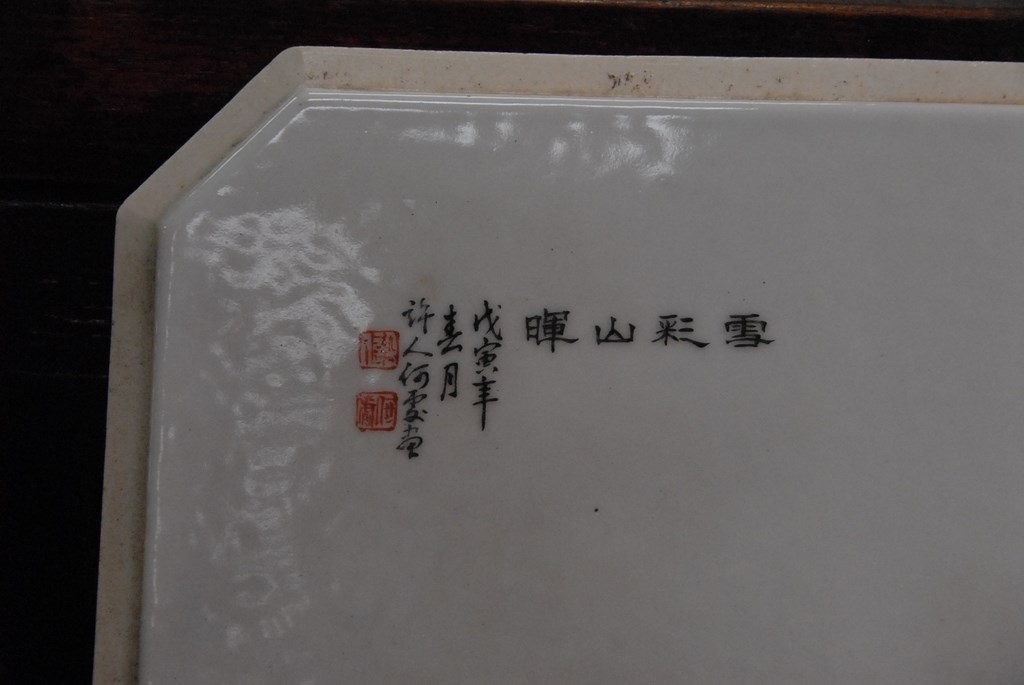 雪彩山暉
戊寅年
春月
許人何雯畫